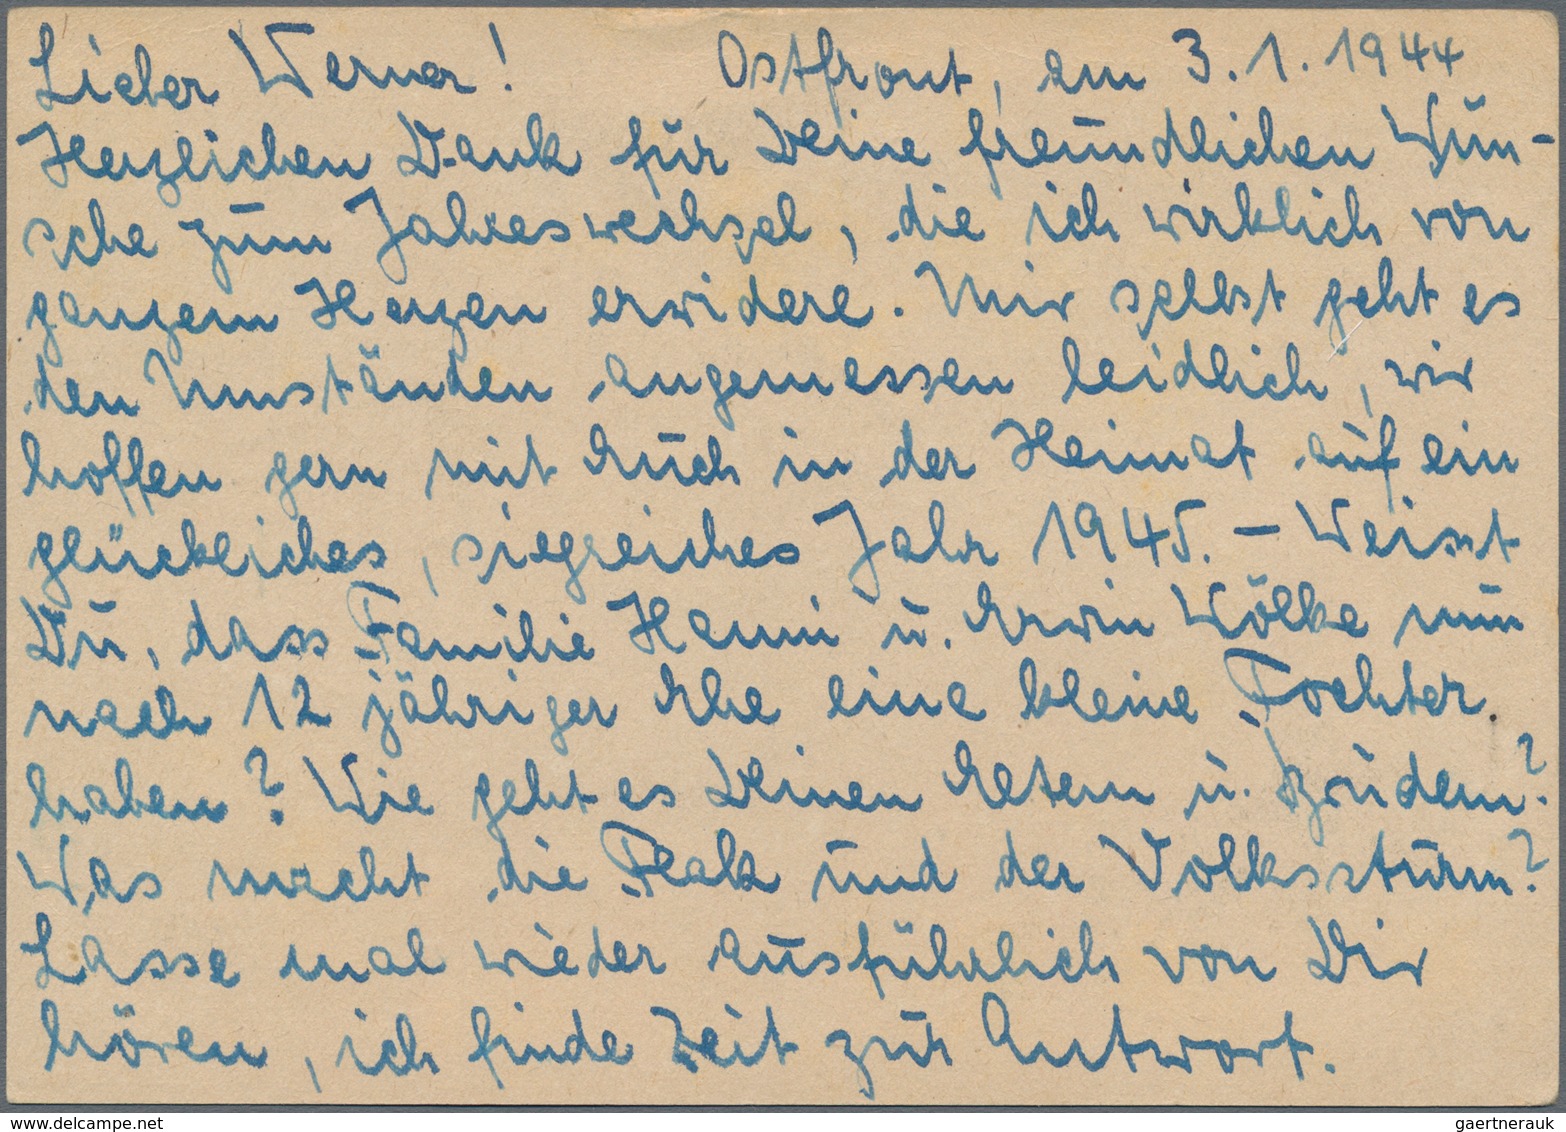 Lieber Werner! Ostfront, am 3.1.1944
Herzlichen Dank für Deine freundlichen Wün-
sche zum Jahreswechsel, die ich wirklich von
ganzem Herzen erwidere. Mir selbst geht es
den Umständen angemessen leidlich, wir
hoffen gern mit Euch in der Heimat auf ein
glückliches, siegreiches Jahr 1945. – Weisst
Du, dass Familie Hanni u. Erwin Wölke nun
nach 12 jähriger Ehe eine kleine Tochter
haben? Wie geht es Deinen Eltern u. Brüdern?
Was macht die Flak und der Volkssturm?
Lasse mal wieder ausführlich von Dir
hören, ich finde Zeit zur Antwort.
www.delcampe.net
gaertnerauk